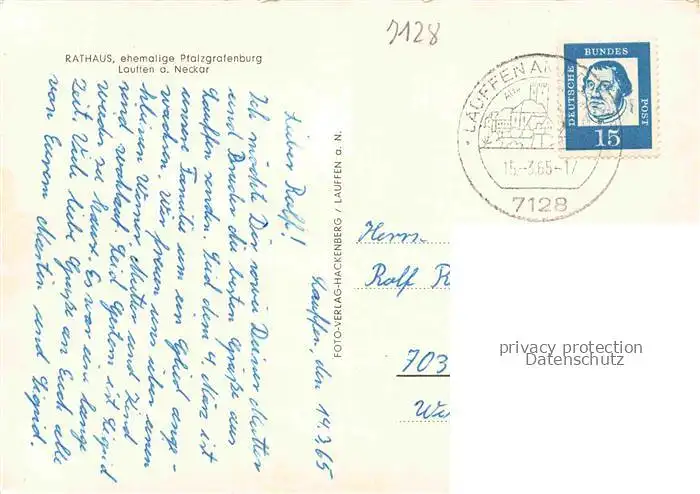 7128
RATHAUS, ehemalige Pfalzgrafenburg
Lauffen a. Neckar
Lauffen, den 14.3.65
Lieber Rolf!
Ich möchte Dir sowie Deiner Mutter
und Bruder die besten Grüße aus
Lauffen senden. Seid dem 4. März ist
unsere Familie um ein Glied ange-
wachsen. Wir freuen uns über einen
kleinen Werner. Mutter und Kind
sind wohlauf. Seid Gestern ist Sigrid
wieder zu Hause. Es war eine lange
Zeit. Viele liebe Grüße an Euch alle
von Eurem Martin und Sigrid.
FOTO-VERLAG-HACKENBERG / LAUFFEN a. N.
LAUFFEN AM
15.-3.65-17
7128
DEUTSCHE
BUNDES
POST
15
Herrn
Rolf
703
privacy protection
Datenschutz